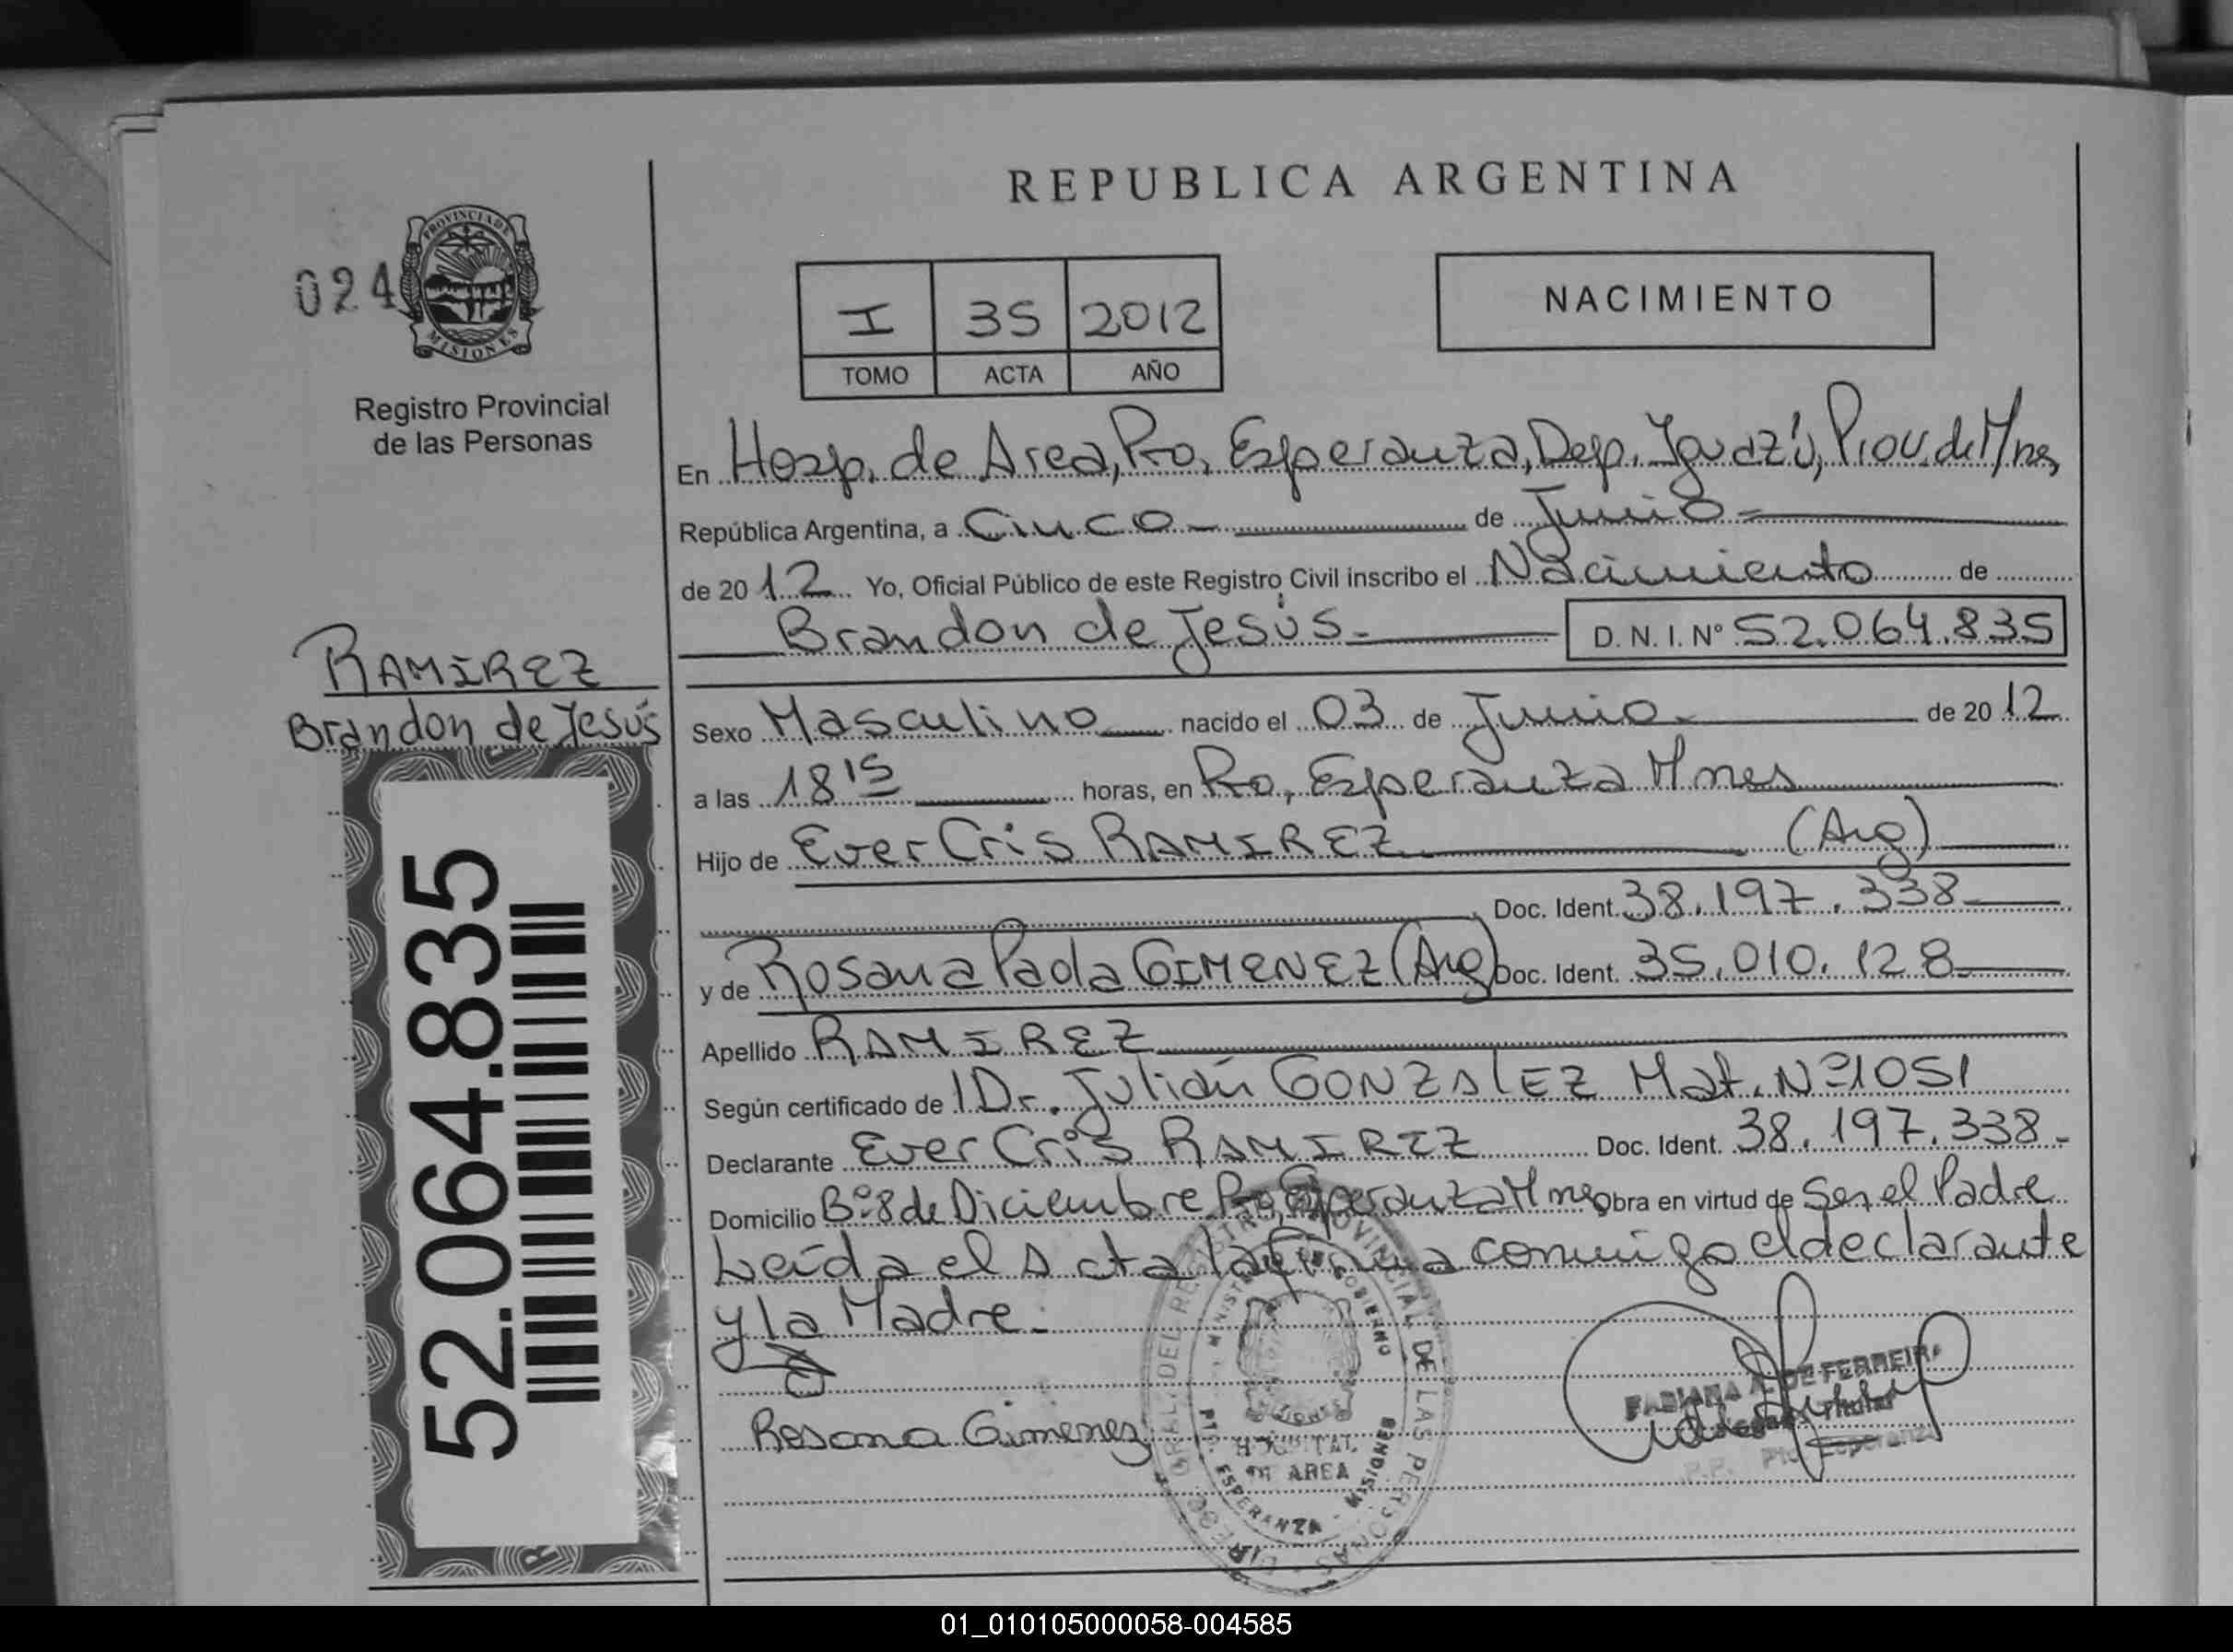 REPUBLICA ARGENTINA
024
PROVINCIA DE
MISIONES
Registro Provincial
de las Personas
I 35 2012
TOMO ACTA AÑO
NACIMIENTO
En Hosp. de Area, Pto, Esperanza, Dep. Iguazú, Prov. de Mnes,
República Argentina, a Cinco de Junio
de 2012 Yo, Oficial Público de este Registro Civil inscribo el Nacimiento de
Brandon de Jesús D.N.I. Nº 52.064.835
RAMIREZ
Brandon de Jesús
52.064.835
Sexo Masculino nacido el 03 de Junio de 2012
a las 18 15 horas, en Pto, Esperanza Mnes
Hijo de Ever Cris RAMIREZ (Arg)
Doc. Ident. 38.197.338
y de Rosana Paola GIMENEZ (Arg) Doc. Ident. 35.010.128
Apellido RAMIREZ
Según certificado de Dr. Julián GONZALEZ Mat. Nº 1051
Declarante Ever Cris RAMIREZ Doc. Ident. 38.197.338
Domicilio Bº 8 de Diciembre Pto, Esperanza Mnes Obra en virtud de Ser el Padre
Leída el Acta la firma conmigo el declarante
y la Madre.
Rosana Gimenez
REGISTRO PROVINCIAL DE LAS PERSONAS
HOSPITAL
DE AREA
PTO. ESPERANZA - MISIONES
FABIANA A. DE FERREIRA
Titular
R.P. Pto. Esperanza
01_010105000058-004585